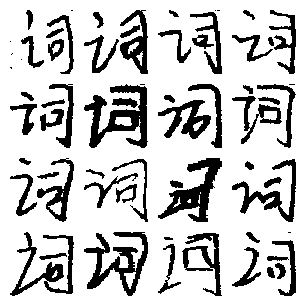 词词词词
词词词词
词词词词
词词词词